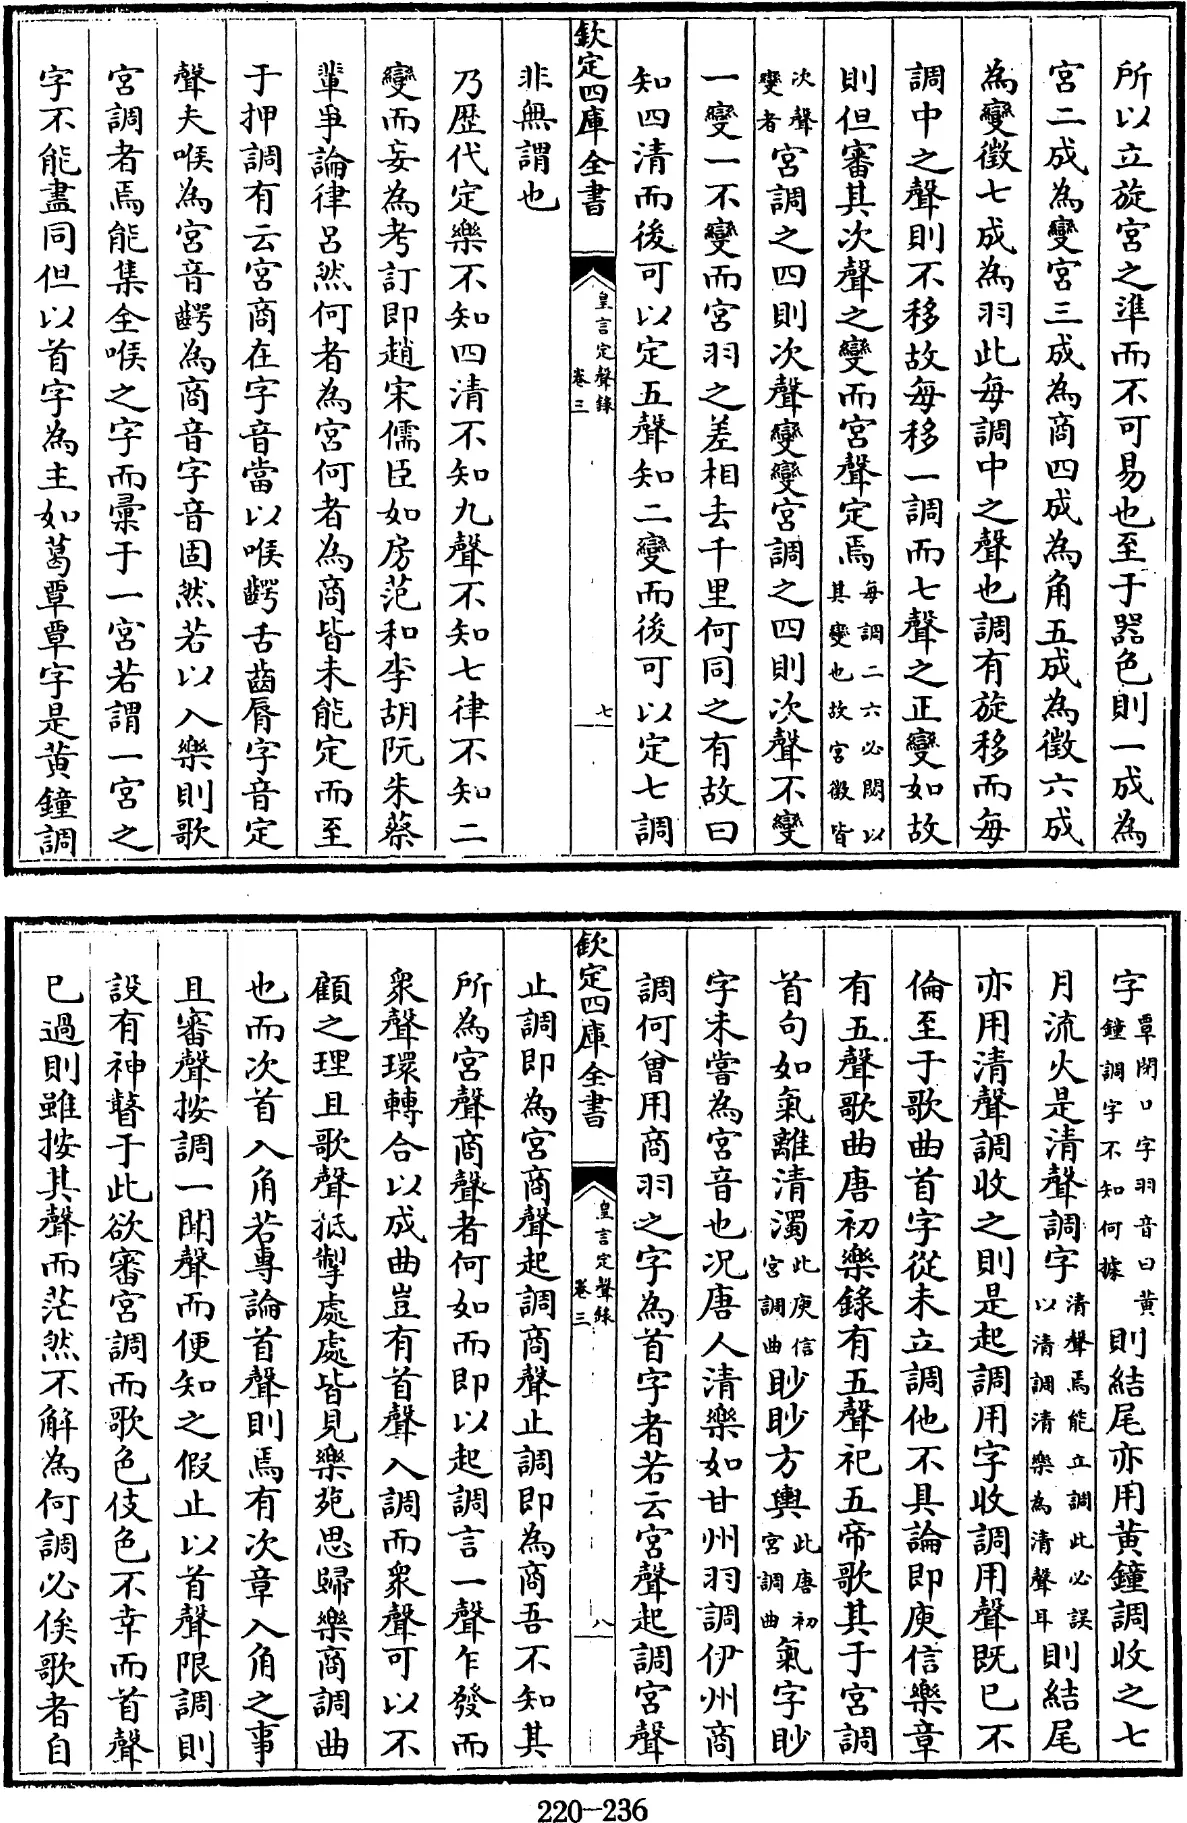 所以立旋宮之準而不可易也至于器色則一成為
宮二成為變宮三成為商四成為角五成為徵六成
為變徵七成為羽此每調中之聲也調有旋移而每
調中之聲則不移故每移一調而七聲之正變如故
則但審其次聲之變而宮聲定焉每調二六必閱以其變也故宮徵皆
次聲變者宮調之四則次聲變變宮調之四則次聲不變
一變一不變而宮羽之差相去千里何同之有故曰
知四清而後可以定五聲知二變而後可以定七調
非無謂也
欽定四庫全書
皇言定聲錄
卷三
七
乃歷代定樂不知四清不知九聲不知七律不知二
變而妄為考訂即趙宋儒臣如房范和李胡阮朱蔡
輩爭論律呂然何者為宮何者為商皆未能定而至
于押調有云宮商在字音當以喉齶舌齒脣字音定
聲夫喉為宮音齶為商音字音固然若以入樂則歌
宮調者焉能集全喉之字而彙于一宮若謂一宮之
字不能盡同但以首字為主如葛覃覃字是黃鐘調
字覃閉口字羽音曰黃鐘調字不知何據則結尾亦用黃鐘調收之七
月流火是清聲調字清聲焉能立調此必誤以清調清樂為清聲耳則結尾
亦用清聲調收之則是起調用字收調用聲既已不
倫至于歌曲首字從未立調他不具論即庾信樂章
有五聲歌曲唐初樂錄有五聲祀五帝歌其于宮調
首句如氣離清濁此庾信宮調曲眇眇方輿此唐初宮調曲氣字眇
字未嘗為宮音也況唐人清樂如甘州羽調伊州商
調何曾用商羽之字為首字者若云宮聲起調宮聲
欽定四庫全書
皇言定聲錄
卷三
八
止調即為宮商聲起調商聲止調即為商吾不知其
所為宮聲商聲者何如而即以起調言一聲乍發而
衆聲環轉合以成曲豈有首聲入調而衆聲可以不
顧之理且歌聲抵掣處處皆見樂苑思歸樂商調曲
也而次首入角若專論首聲則焉有次章入角之事
且審聲按調一聞聲而便知之假止以首聲限調則
設有神瞽于此欲審宮調而歌色伎色不幸而首聲
已過則雖按其聲而茫然不解為何調必俟歌者自
220-236